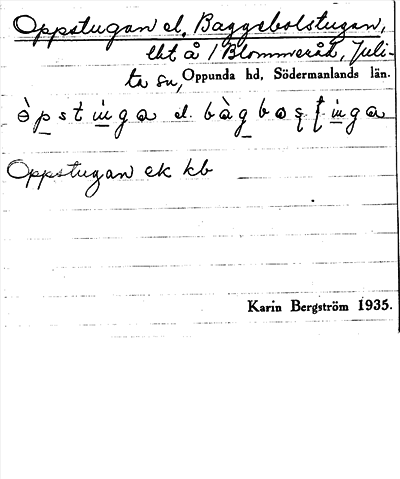 Oppstugan el. Baggebolstugan,
lht å 1 Blommeråd, Juli-
ta sn, Oppunda hd, Södermanlands län.
òpstuga el. bàgboʂtuga
Oppstugan ek kb
Karin Bergström 1935.